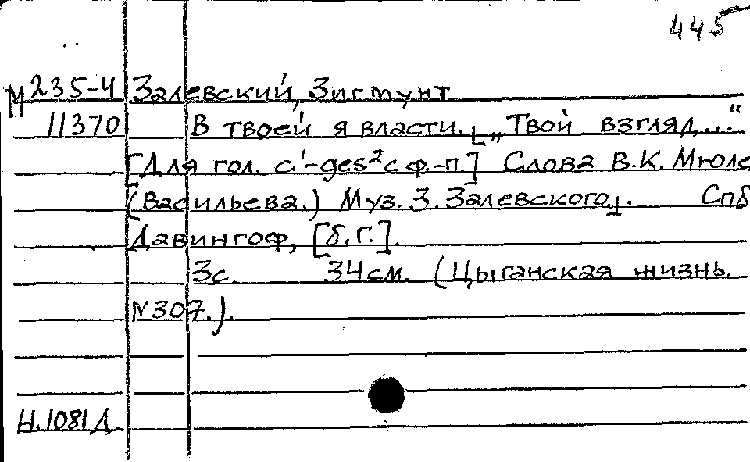 445
М 235-4 Залевский, Зигмунт
11370 В твоей я власти. [„Твой взгляд..."
[Для гол. c¹-ges²с ф-п.] Слова В.К. Мюле
(Васильева.) Муз. З. Залевского]. Спб
Давингоф, [б.г.].
3с. 34см. (Цыганская жизнь.
№307.).
Н.1081Д